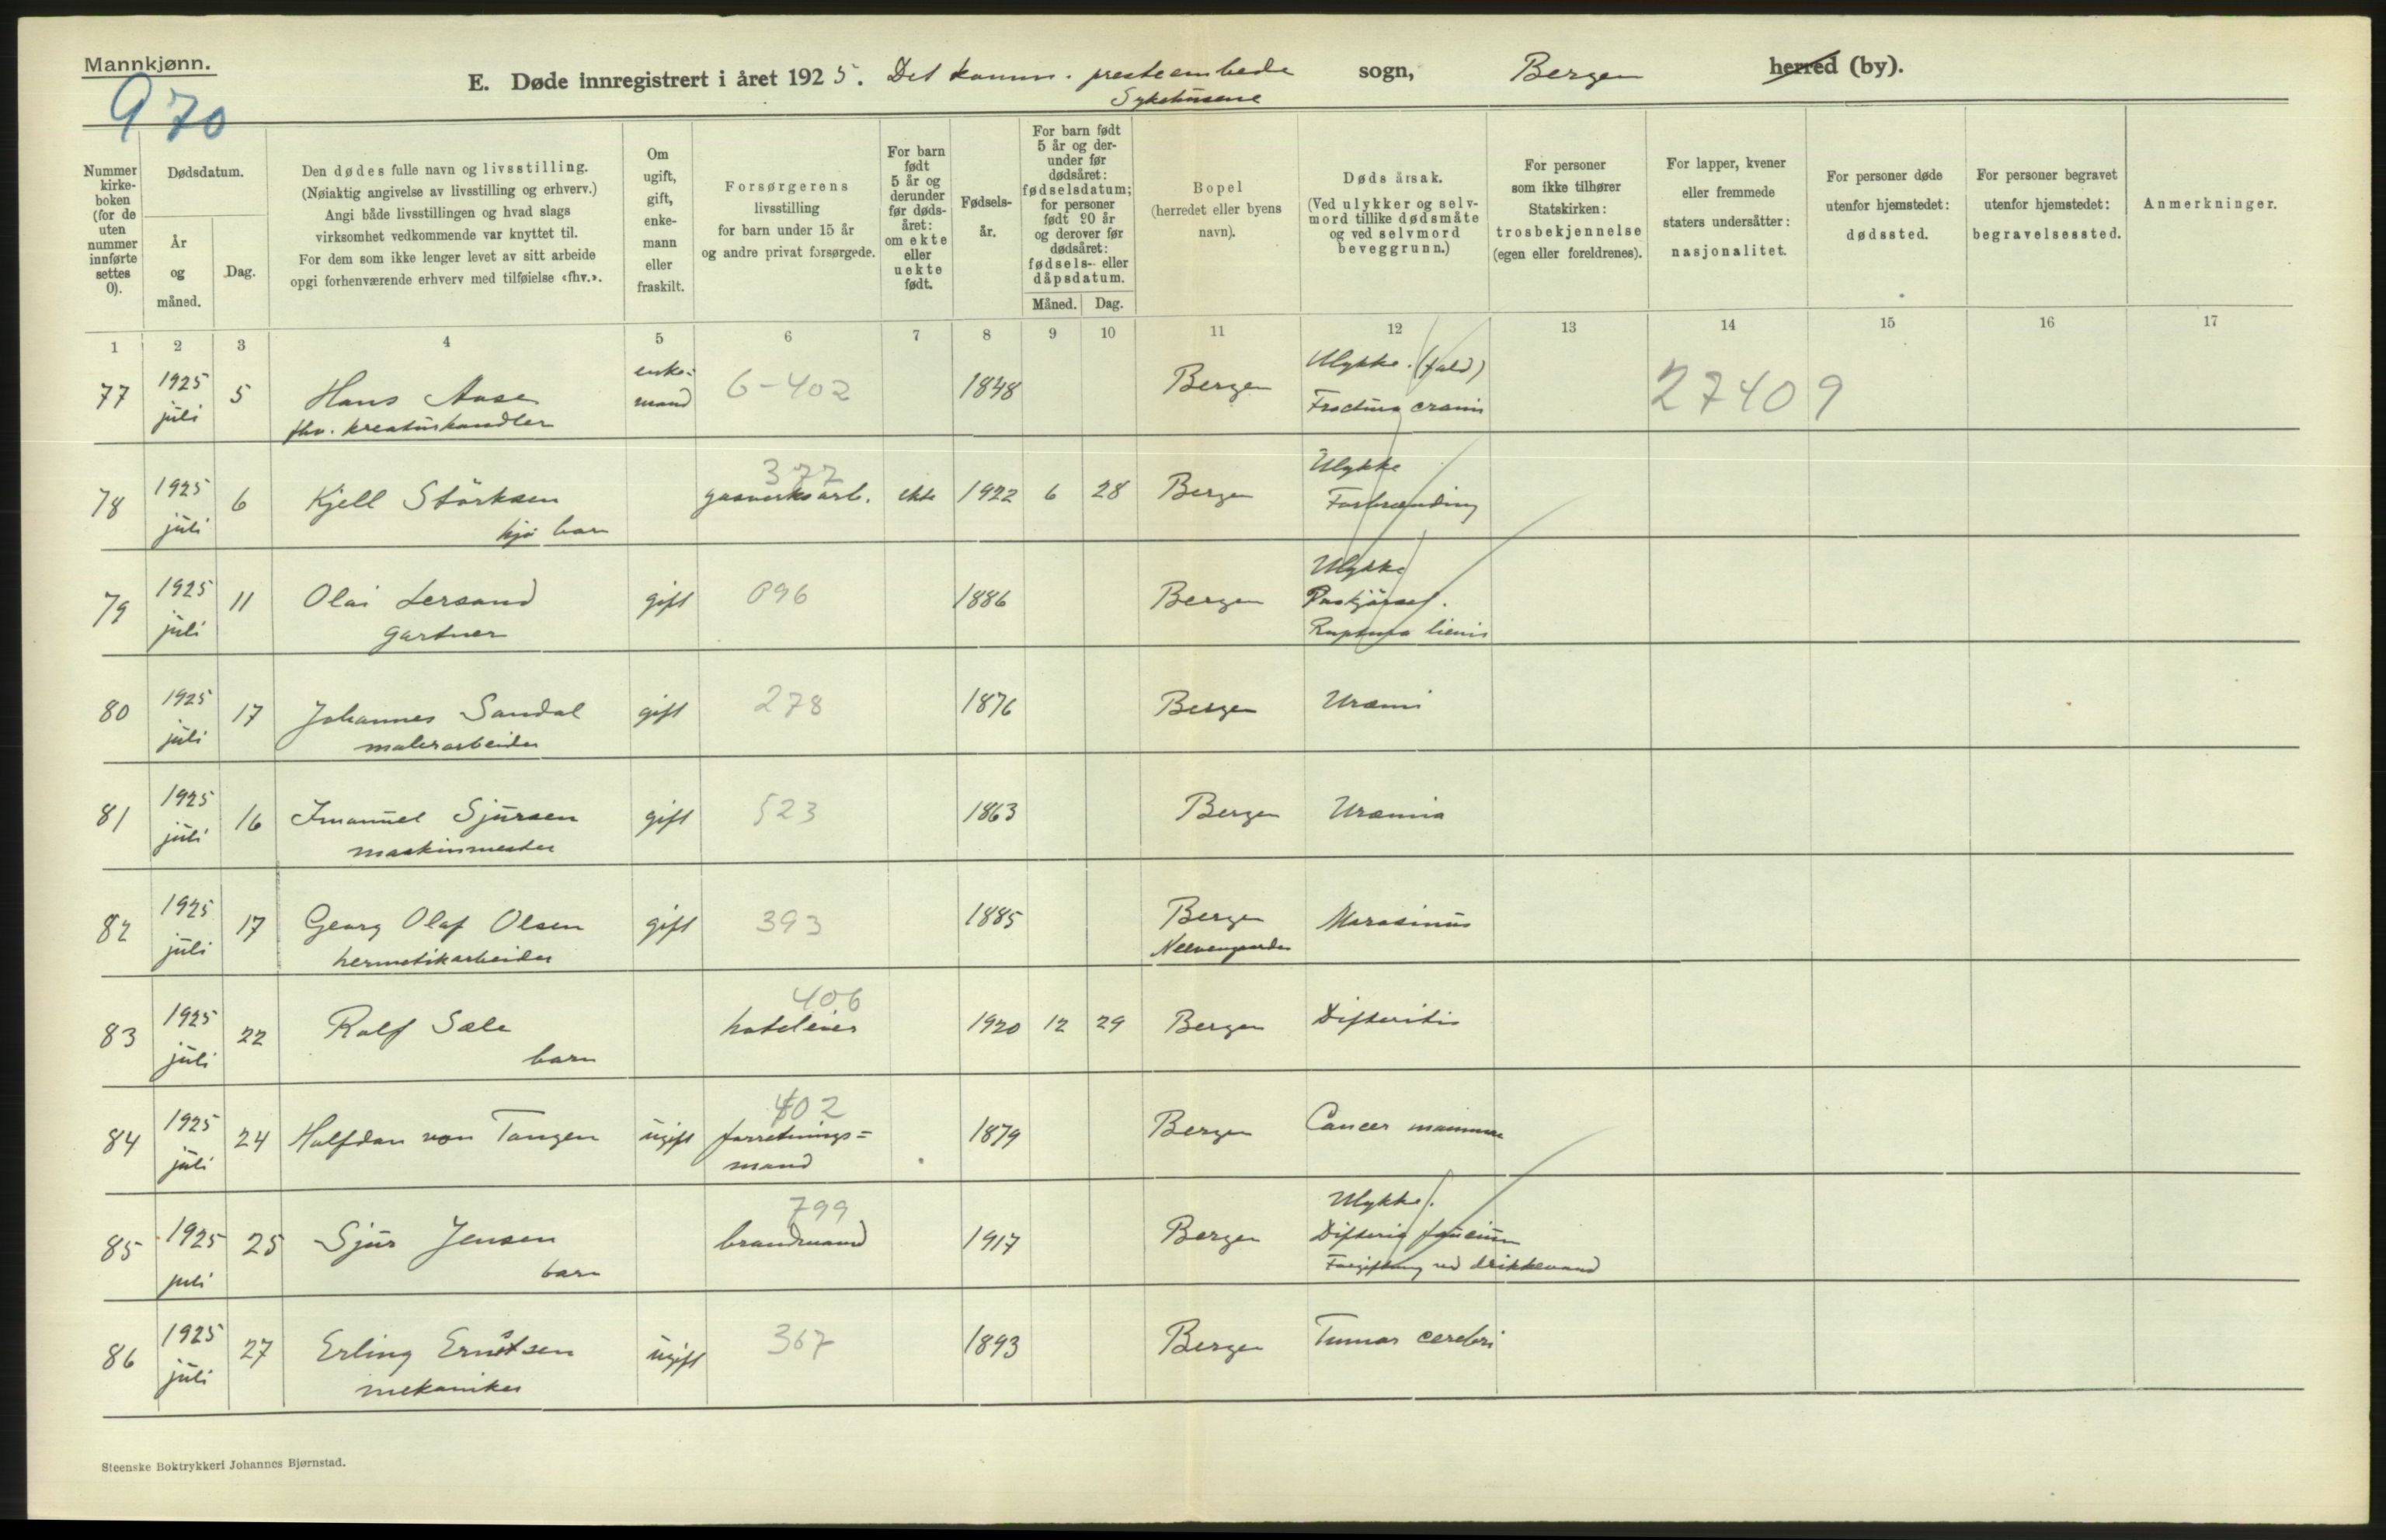 Mannkjønn.
970
E. Døde innregistrert i året 1925. Det komm. presteembede sogn, Bergen herred (by).
Sykehusene
Nummer kirke-boken (for de uten nummer innførte settes 0).
Dødsdatum.
År og måned.
Dag.
Den dødes fulle navn og livsstilling.
(Nøiaktig angivelse av livsstilling og erhverv.)
Angi både livsstillingen og hvad slags
virksomhet vedkommende var knyttet til.
For dem som ikke lenger levet av sitt arbeide
opgi forhenværende erhverv med tilføielse «fhv.».
Om ugift, gift, enke-mann eller fraskilt.
Forsørgerens
livsstilling
for barn under 15 år
og andre privat forsørgede.
For barn født 5 år og derunder før døds-året: om ekte eller uekte født.
Fødsels-år.
For barn født 5 år og der-under før dødsåret: fødselsdatum; for personer født 90 år og derover før dødsåret: fødsels- eller dåpsdatum.
Måned. Dag.
Bopel
(herredet eller byens navn).
Dødsårsak.
(Ved ulykker og selv-mord tillike dødsmåte og ved selvmord beveggrunn.)
For personer som ikke tilhører Statskirken: trosbekjennelse (egen eller foreldrenes).
For lapper, kvener eller fremmede staters undersåtter: nasjonalitet.
For personer døde utenfor hjemstedet: dødssted.
For personer begravet utenfor hjemstedet: begravelsessted.
Anmerkninger.
1 2 3 4 5 6 7 8 9 10 11 12 13 14 15 16 17
77 1925 juli 5 Hans Aase enke-mand 6-402 1848 Bergen Ulykke. (fald) 27409
fhv. kreaturhandler Fractura cranii
78 1925 juli 6 Kjell Störksen 377 gasverksarb. ekte 1922 6 28 Bergen Ulykke
barn Forbrænding
79 1925 juli 11 Olai Lersand gift 096 1886 Bergen Ulykke
gartner Paakjörsel.
Ruptura lienis
80 1925 juli 17 Johannes Sandal gift 278 1876 Bergen Uræmi
malerarbeider
81 1925 juli 16 Imanuel Sjursen gift 523 1863 Bergen Uræmia
maskinmester
82 1925 juli 17 Georg Olaf Olsen gift 393 1885 Bergen Marasmus
hermetikarbeider Neevengaarden
83 1925 juli 22 Rolf Sæle 406 hoteleier 1920 12 29 Bergen Difteritis
barn
84 1925 juli 24 Halfdan von Tangen ugift 402 forretnings=mand 1879 Bergen Cancer mammae
85 1925 juli 25 Sjur Jensen 799 brandmand 1917 Bergen Ulykke.
barn Difteria faucium
Forgiftning ved drikkevand
86 1925 juli 27 Erling Ernstsen ugift 367 1893 Bergen Tumor cerebri
mekaniker
Steenske Boktrykkeri Johannes Bjørnstad.